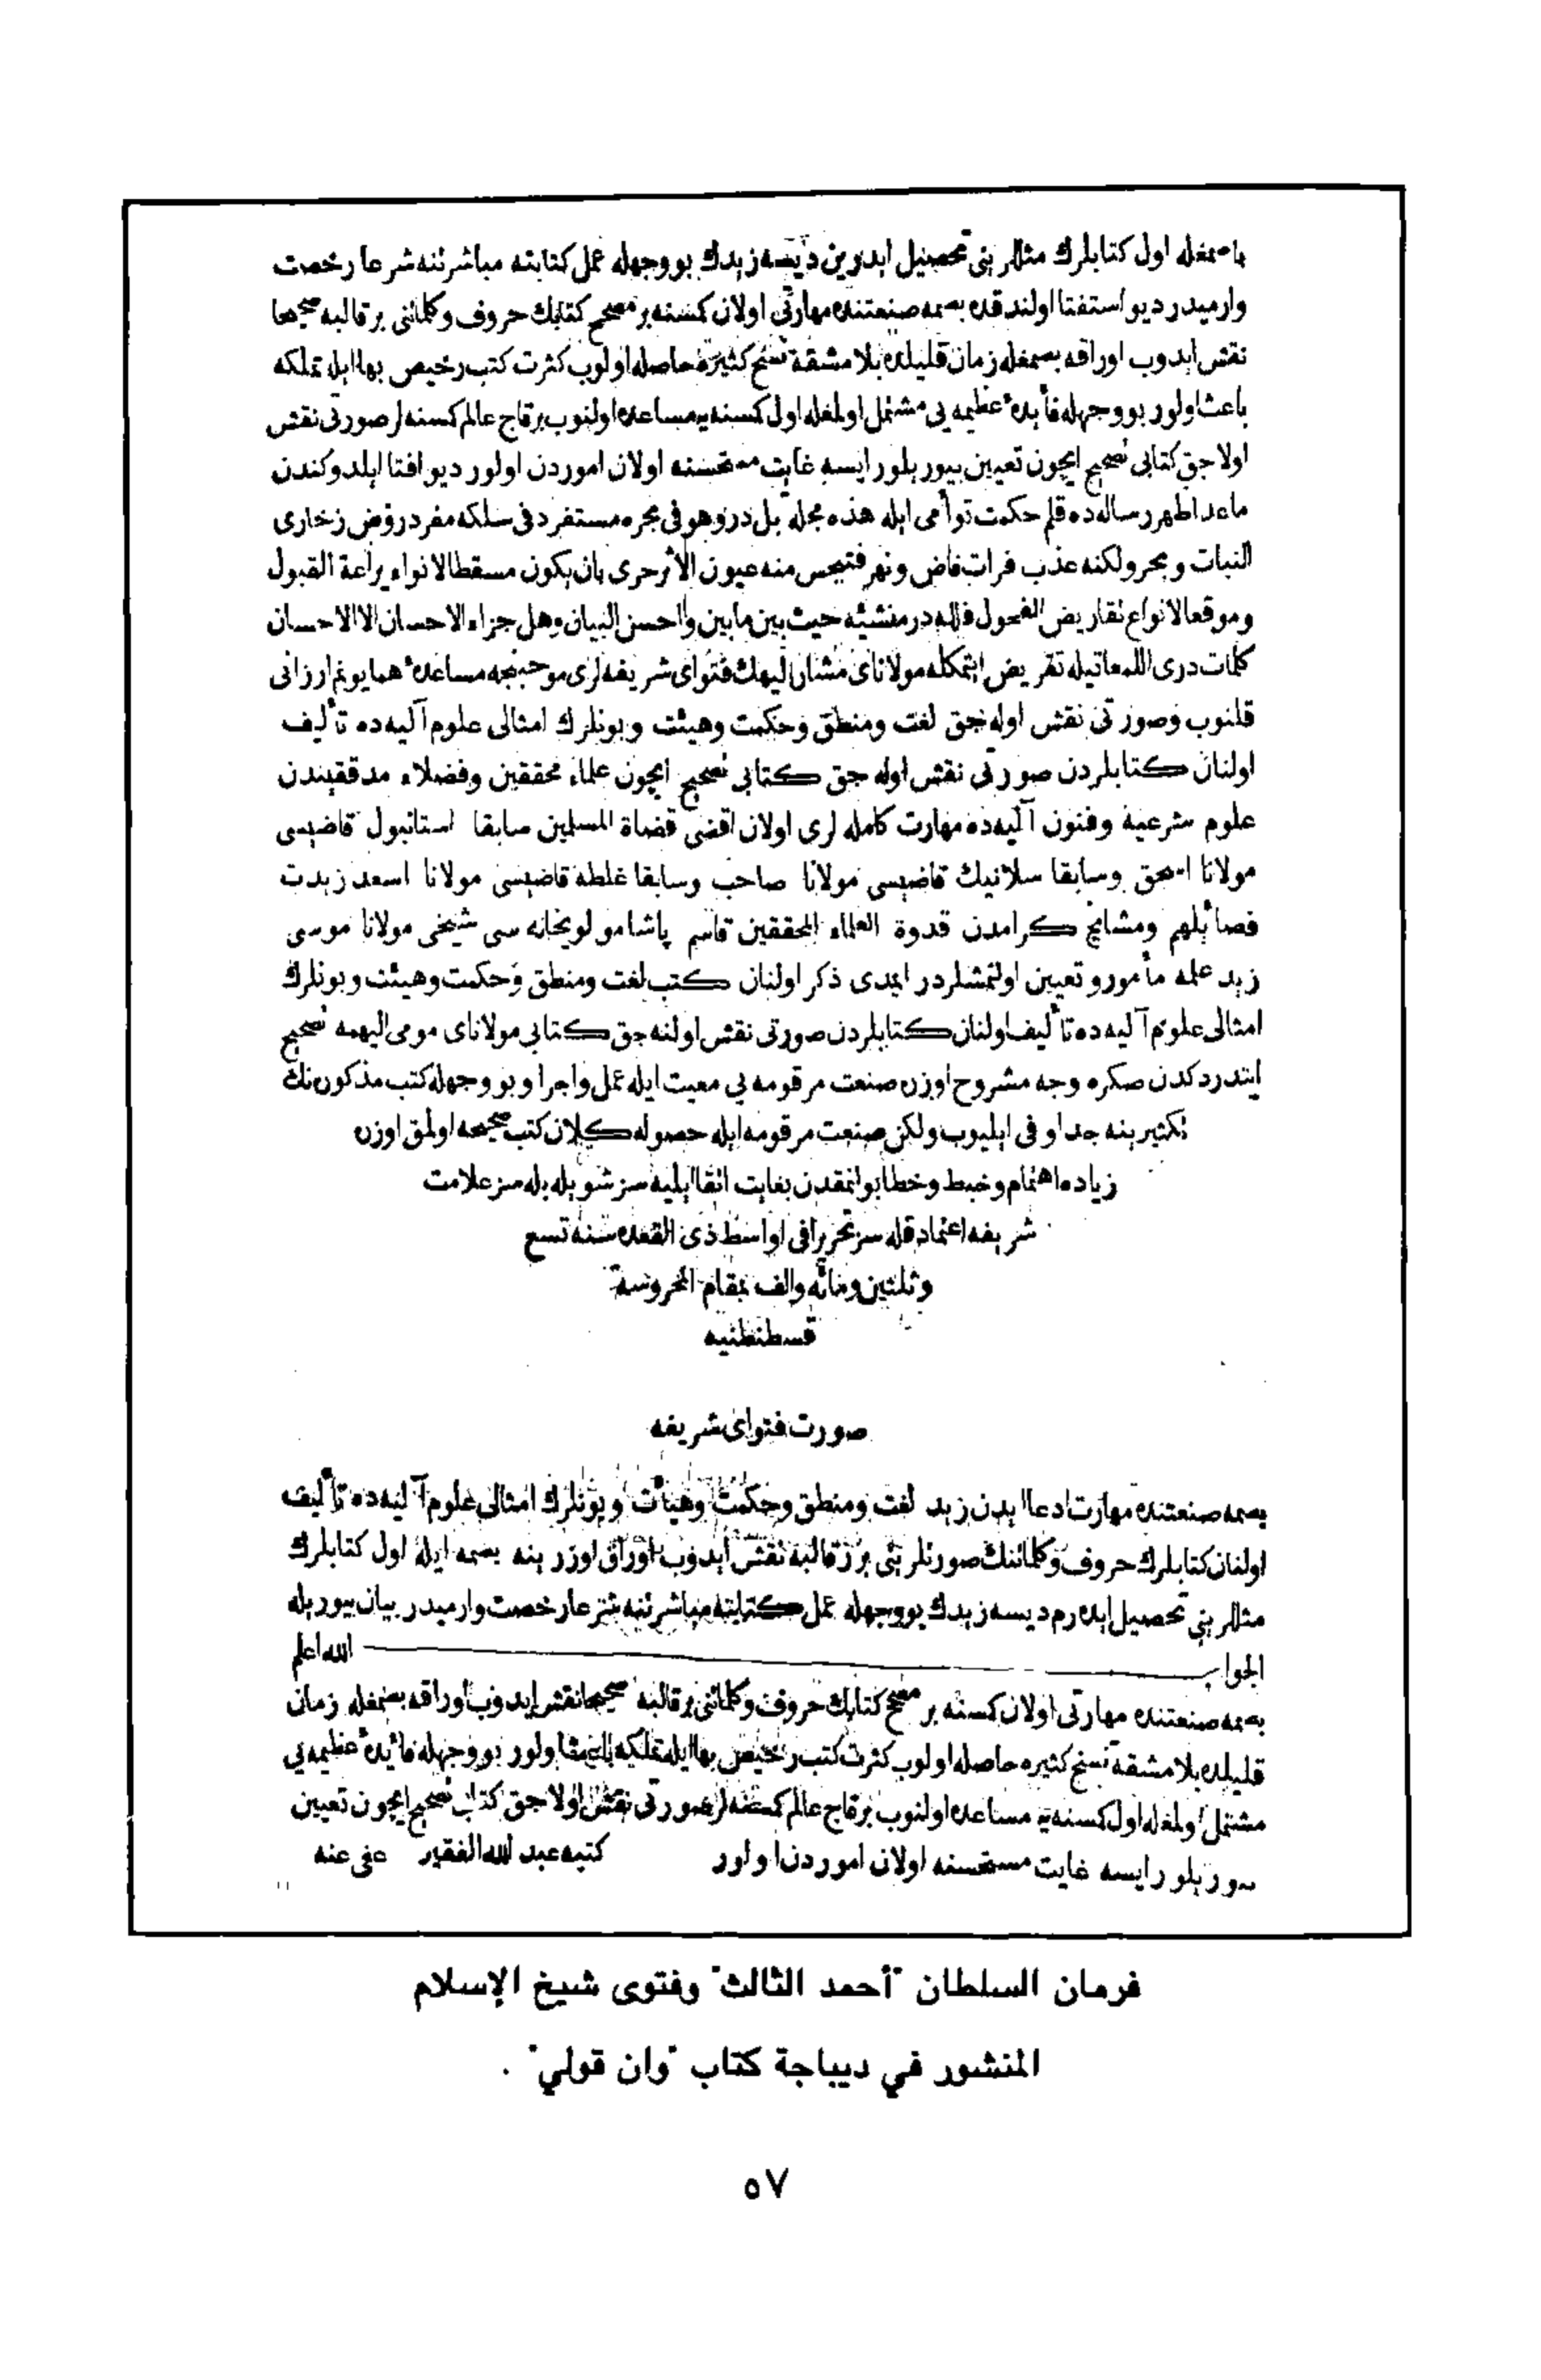 باصمغله اول كتابلرك مثللرينى تحصيل ايدرين ديسه زيدك بو وجهله عمل كتابته مباشرتنه شرعا رخصت
وارميدر ديو استفتا اولندقده بصمه صنعتنده مهارتى اولان كمسنه بر مصحح كتابك حروف وكلماتنى بر قالبه صحيحا
نقش ايدوب اوراقه بصمغله زمان قليلده بلا مشقة نسخ كثيره حاصله اولوب كثرت كتب رخيص بها ايله تملكه
باعث اولور بو وجهله فائده عظيمه يى مشتمل اولمغله اول كمسنه يه مساعده اولنوب برقاج عالم كمسنه لر صورتى نقش
اولاجق كتابى تصحيح ايچون تعيين بيوريلور ايسه غايت مستحسنه اولان اموردن اولور ديو افتا ايلدوكندن
ماعدا طهر رساله ده قلم حكمت توأمى ايله هذه مجلة بل درة وهو فى بحره مستفرد فى سلكه مفرد روض زخارى
النبات وبحر ولكنه عذب فرات فاض ونهر فتبجس منه عيون الاثر حرى بان يكون مسقطا لانواء براعة القبول
وموقعا لانواع تقاريض الفحول فلله در منشئه حيث بين ما بين واحسن البيان وهل جزاء الاحسان الا الاحسان
كلمات درى اللمعاتيله تقريض ايتمكله مولاناى مشار اليهك فتواى شريفه لرى موجبنجه مساعده همايونم ارزانى
قلنوب وصورتى نقش اوله جق لغت ومنطق وحكمت وهيئت وبونلرك امثالى علوم آليه ده تأليف
اولنان كتابلردن صورتى نقش اوله جق كتابى تصحيح ايچون علماء محققين وفضلاء مدققيندن
علوم شرعيه وفنون آليه ده مهارت كامله لرى اولان اقضى قضاة المسلمين سابقا استانبول قاضيسى
مولانا اسحق وسابقا سلانيك قاضيسى مولانا صاحب وسابقا غلطه قاضيسى مولانا اسعد زيدت
فضائلهم ومشايخ كرامدن قدوة العلماء المحققين قاسم پاشا مولويخانه سى شيخى مولانا موسى
زيد علمه مأمور و تعيين اولنمشلردر ايمدى ذكر اولنان كتب لغت ومنطق وحكمت وهيئت وبونلرك
امثالى علوم آليه ده تأليف اولنان كتابلردن صورتى نقش اولنه جق كتابى مولاناى مومى اليهمه تصحيح
ايتدردكدن صكره وجه مشروح اوزره صنعت مرقومه يى معيت ايله عمل واجرا وبو وجهله كتب مذكوره نك
تكثيرينه جد اوفى ايليوب ولكن صنعت مرقومه ايله حصوله كلان كتب صحيحه اولمق اوزره
زياده اهتمام وخبط وخطا بولنمقدن بغايت اتقا ايليه سز شويله بله سز علامت
شريفه اعتماد قله سز تحريرا فى اواسط ذى القعده سنه تسع
وثلثين ومائه والف بمقام المحروسة
قسطنطنيه
صورت فتواى شريفه
بصمه صنعتنده مهارت ادعا ايدن زيد لغت ومنطق وحكمت وهيأت وبونلرك امثالى علوم آليه ده تأليف
اولنان كتابلرك حروف وكلماتنك صورتلرينى بر قالبه نقش ايدوب اوراق اوزرينه بصمه ايله اول كتابلرك
مثللرينى تحصيل ايدرم ديسه زيدك بو وجهله عمل كتابته مباشرتنه شرعا رخصت وارميدر بيان بيوريله
الجواب الله اعلم
بصمه صنعتنده مهارتى اولان كمسنه بر مصحح كتابك حروف وكلماتنى بر قالبه صحيحا نقش ايدوب اوراقه بصمغله زمان
قليلده بلا مشقة نسخ كثيره حاصله اولوب كثرت كتب رخيص بها ايله تملكه باعث اولور بو وجهله فائده عظيمه يى
مشتمل اولمغله اول كمسنه يه مساعده اولنوب برقاج عالم كمسنه لر صورتى نقش اولاجق كتاب تصحيح ايچون تعيين
بيوريلور ايسه غايت مستحسنه اولان اموردن اولور كتبه عبد الله الفقير عفى عنه
فرمان السلطان "أحمد الثالث" وفتوى شيخ الإسلام
المنشور في ديباجة كتاب "وان قولي" .
٥٧